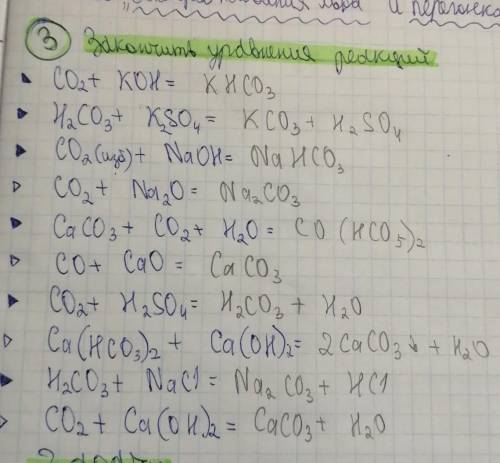 и перегонка
3 Закончить уравнения реакций
CO₂ + KOH = KHCO₃
H₂CO₃ + K₂SO₄ = KCO₃ + H₂SO₄
CO₂(изб) + NaOH = NaHCO₃
CO₂ + Na₂O = Na₂CO₃
CaCO₃ + CO₂ + H₂O = CO(HCO₅)₂
CO + CaO = CaCO₃
CO₂ + H₂SO₄ = H₂CO₃ + H₂O
Ca(HCO₃)₂ + Ca(OH)₂ = 2CaCO₃↓ + H₂O
H₂CO₃ + NaCl = Na₂CO₃ + HCl
CO₂ + Ca(OH)₂ = CaCO₃ + H₂O